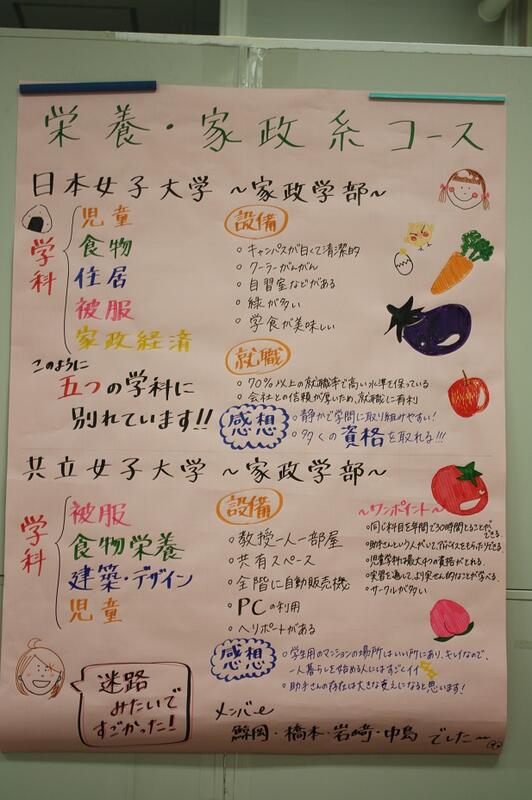 栄養・家政系コース
日本女子大学 ~家政学部~
学科
児童
食物
住居
被服
家政経済
このように
五つの学科に
別れています!!
設備
。キャンパスが白くて清潔的
。クーラーがんがん
。自習室などがある
。緑が多い
。学食が美味しい
就職
。70%以上の就職率で高い水準を保っている
。会社との信頼が厚いため、就職に有利
感想
。静かで学問に取り組みやすい!
。多くの資格を取れる!!!
共立女子大学 ~家政学部~
学科
被服
食物栄養
建築・デザイン
児童
設備
。教授一人一部屋
。共有スペース
。全階に自動販売機
。PCの利用
。ヘリポートがある
~ワンポイント~
。同じ科目を年間で30時間とることができる。
。助手さんという人がいて、アドバイスをもらったりできる
。児童学科は最大4つの資格がとれる。
。実習を通して、より実せん的なことが学べる。
。サークルが多い
感想
。学生用のマンションの場所はいい所にあり、キレイなので、
一人暮らしを始める人にはすごくイイ
。助手さんの存在は大きな支えになると思います!
迷路
みたいで
すごかった!
メンバー
鯨岡・橋本・岩崎・中島 でした~